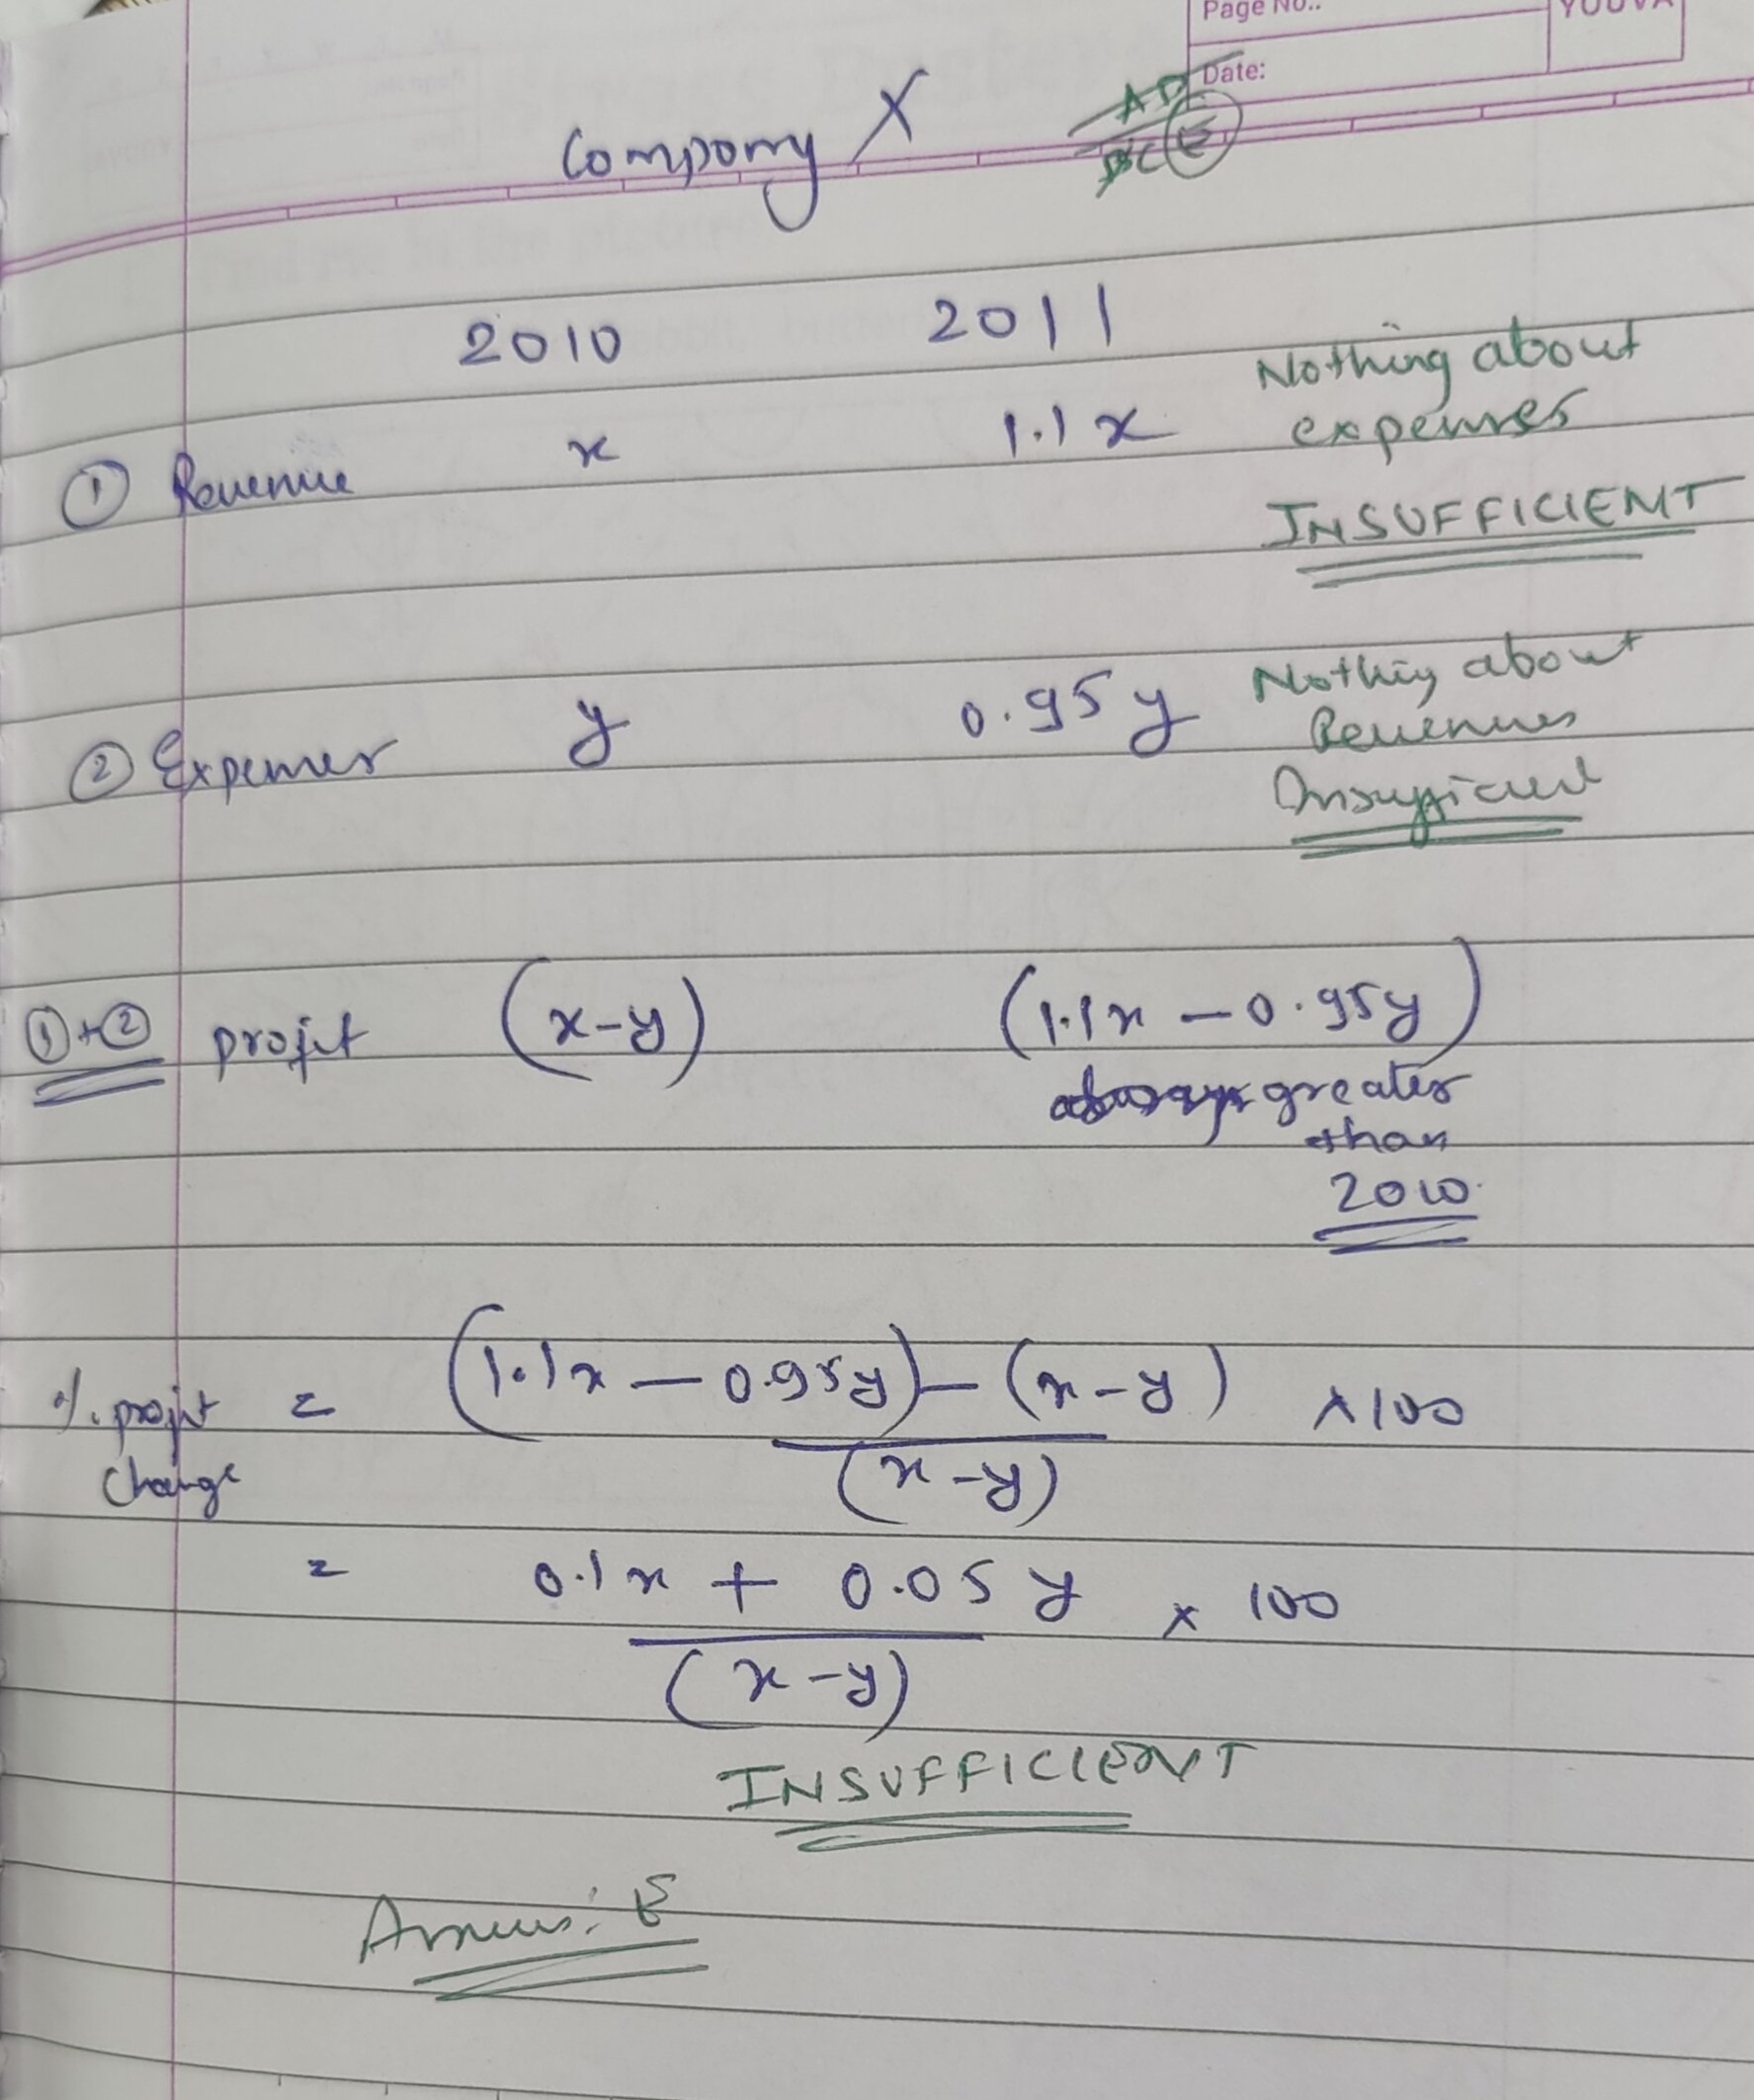 Page No.:
YOUVA
Date:
AD
BCE
Company X
2010 2011
① Revenue x 1.1x
Nothing about
expenses
INSUFFICIENT
② Expenses y 0.95y
Nothing about
Revenues
Insufficient
①+② profit (x-y) (1.1x - 0.95y)
always greater
than
2010
% profit change = (1.1x - 0.95y) - (x-y) × 100
(x-y)
= 0.1x + 0.05y × 100
(x-y)
INSUFFICIENT
Answer: E